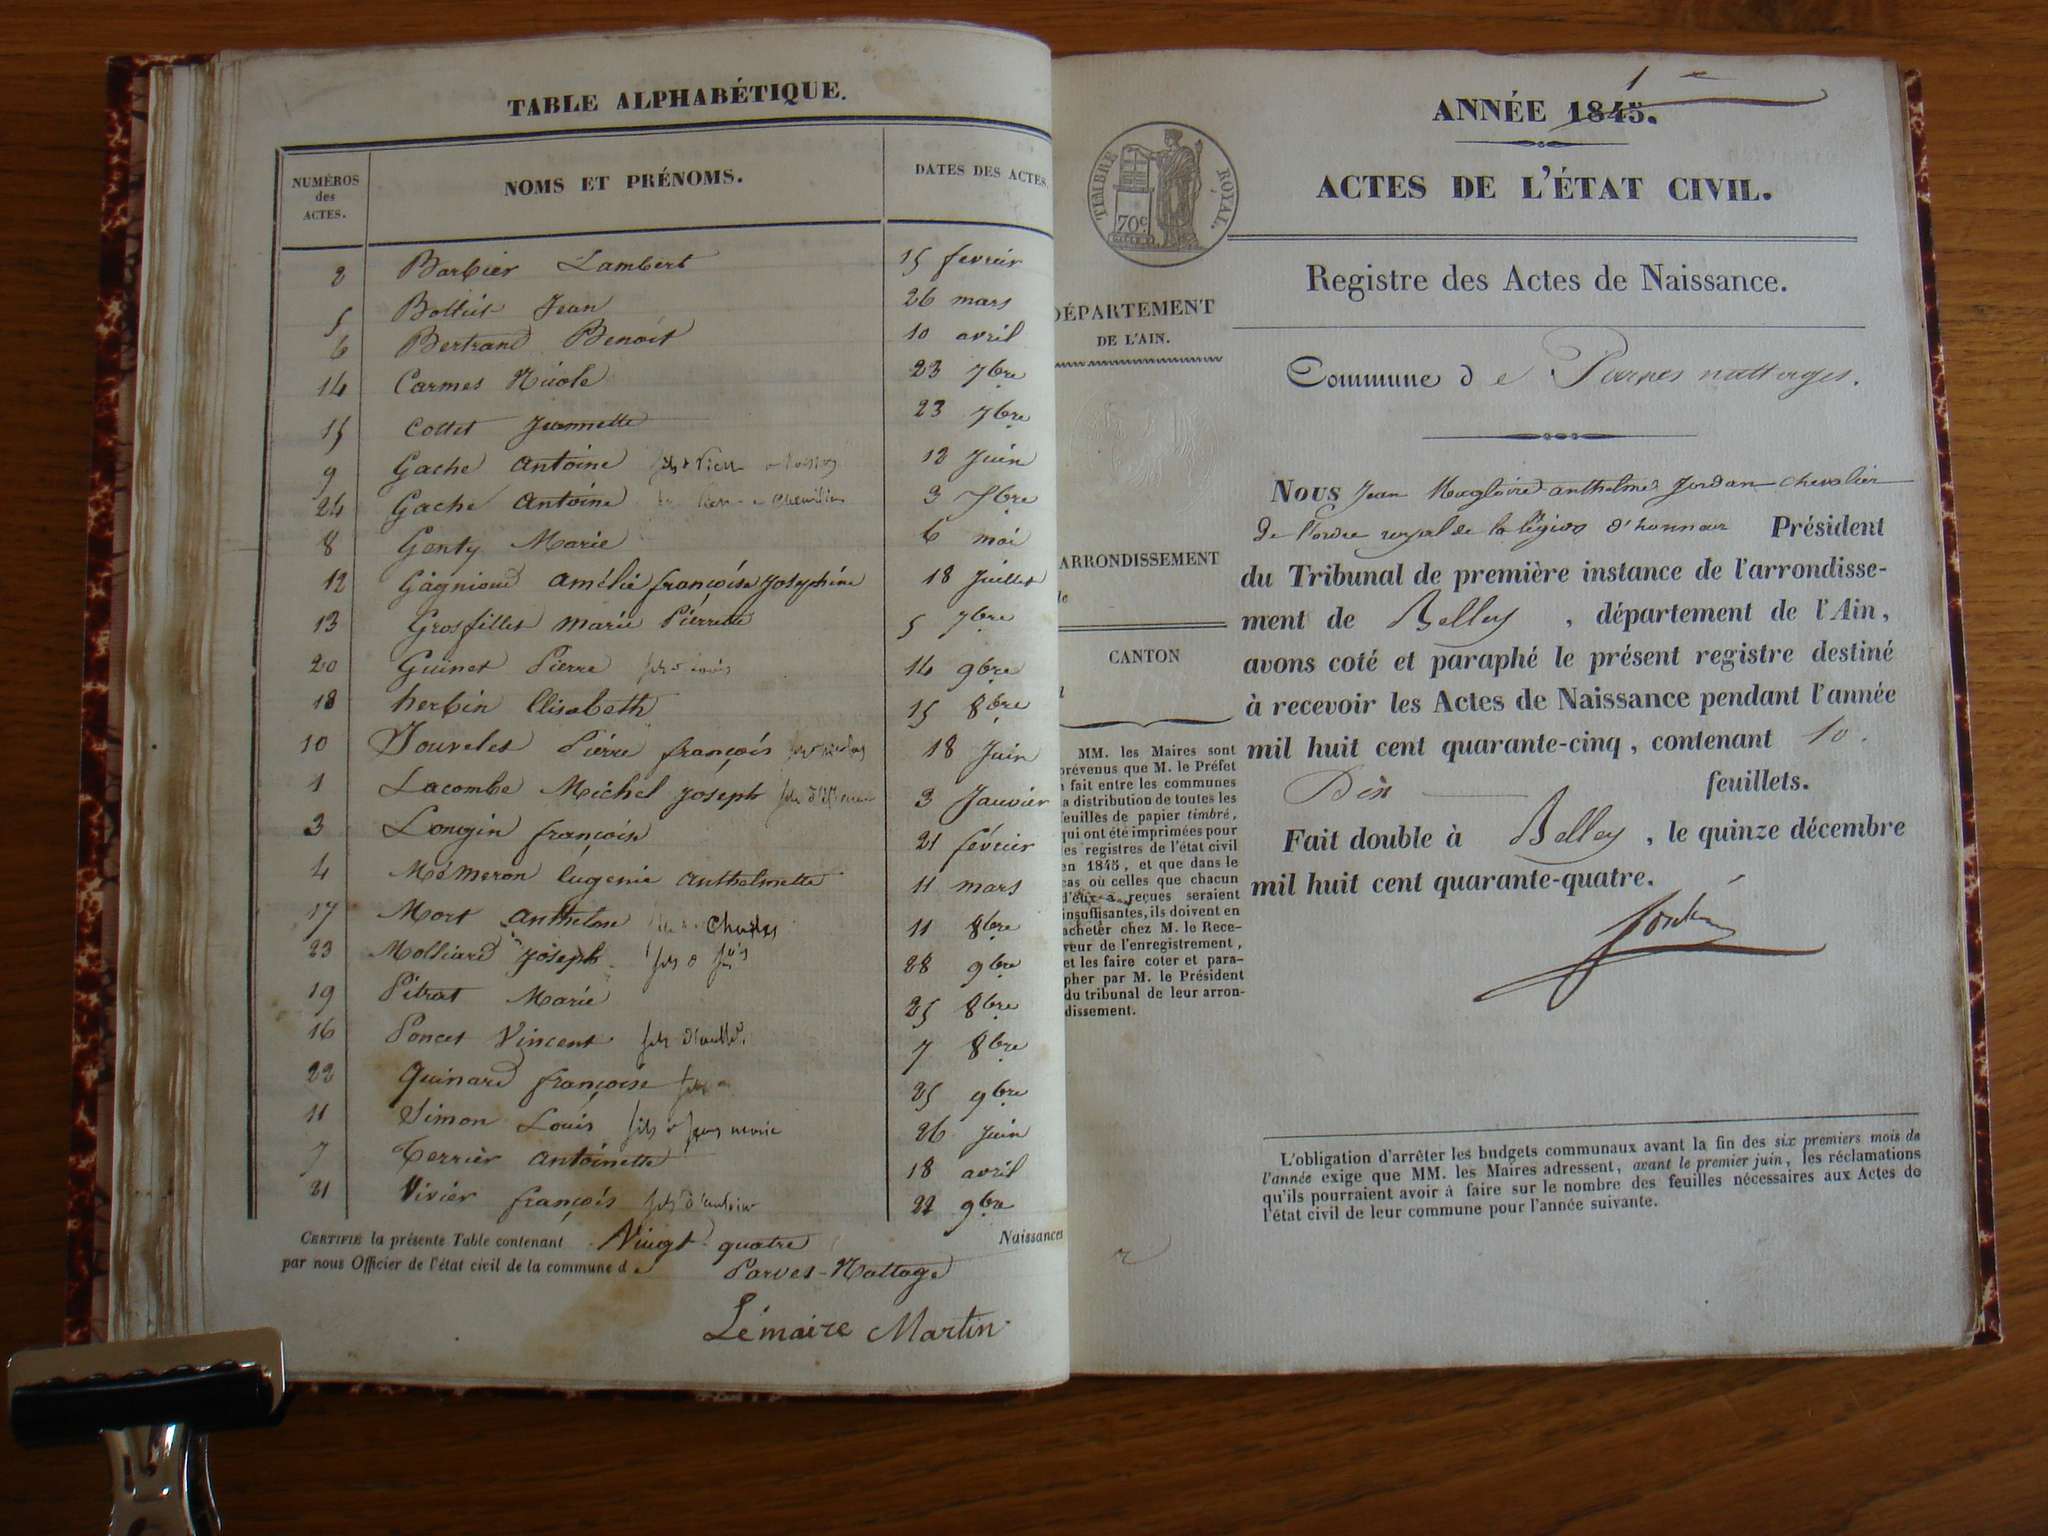 TABLE ALPHABÉTIQUE.
NUMÉROS des ACTES. NOMS ET PRÉNOMS. DATES DES ACTES.
2 Barbier Lambert 15 fevrier
5 Jean 26 mars
6 Bertrand Benoit 10 avril
14 Carmes Nicole 23 7bre
15 Cottet Jeannette 23 7bre
9 Gache Antoine 12 Juin
24 Gache Antoine 3 Xbre
8 Genty Marie 6 mai
12 Amélie françoise Joséphine 18 Juillet
13 Grosfillet Marie Pierrette 5 7bre
20 Guinet Pierre 14 9bre
18 herbin Elisabeth 15 8bre
10 Pierre françois 18 Juin
1 Lacombe Michel Joseph 3 Janvier
3 Longin françois 21 février
4 Mémeron Eugenie anthelmette 11 mars
17 Mort anthelme Charles 11 8bre
23 Molliard Joseph fils 28 9bre
19 Pitrat Marie 25 8bre
16 Poncet Vincent fils 7 8bre
22 Quinard françoise 25 9bre
11 Simon Louis fils 26 Juin
7 Terrier Antoinette 18 avril
21 Vivier françois fils d'antoine 22 9bre
CERTIFIÉ la présente Table contenant Vingt-quatre Naissances
par nous Officier de l'état civil de la commune de Parves-Nattage
Lemaire Martin
1
ANNÉE 1845.
ACTES DE L'ÉTAT CIVIL.
TIMBRE ROYAL.
70c
Registre des Actes de Naissance.
DÉPARTEMENT
DE L'AIN.
Commune de Parves nattages.
Nous Jean Magloire anthelme Jordan chevalier
de l'ordre royal de la légion d'honneur Président
ARRONDISSEMENT
du Tribunal de première instance de l'arrondisse-
ment de Belley , département de l'Ain,
CANTON
avons coté et paraphé le présent registre destiné
à recevoir les Actes de Naissance pendant l'année
mil huit cent quarante-cinq, contenant 10.
Dix feuillets.
Fait double à Belley, le quinze décembre
mil huit cent quarante-quatre.
Jordan
MM. les Maires sont
prévenus que M. le Préfet
a fait entre les communes
la distribution de toutes les
feuilles de papier timbré,
qui ont été imprimées pour
les registres de l'état civil
en 1845, et que dans le
cas où celles que chacun
d'eux a reçues seraient
insuffisantes, ils doivent en
acheter chez M. le Rece-
veur de l'enregistrement,
et les faire coter et para-
pher par M. le Président
du tribunal de leur arron-
dissement.
L'obligation d'arrêter les budgets communaux avant la fin des six premiers mois de
l'année exige que MM. les Maires adressent, avant le premier juin, les réclamations
qu'ils pourraient avoir à faire sur le nombre des feuilles nécessaires aux Actes de
l'état civil de leur commune pour l'année suivante.